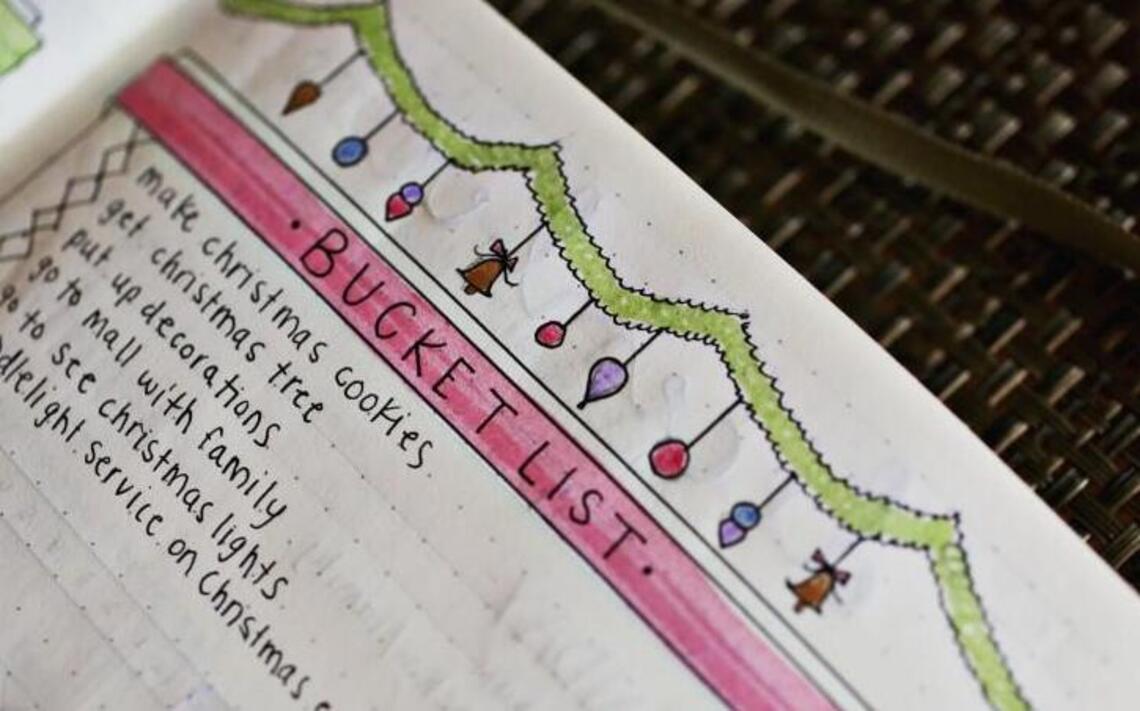 · BUCKET LIST ·
make christmas cookies
get christmas tree
put up decorations
go to mall with family
go to see christmas lights
service on Christmas